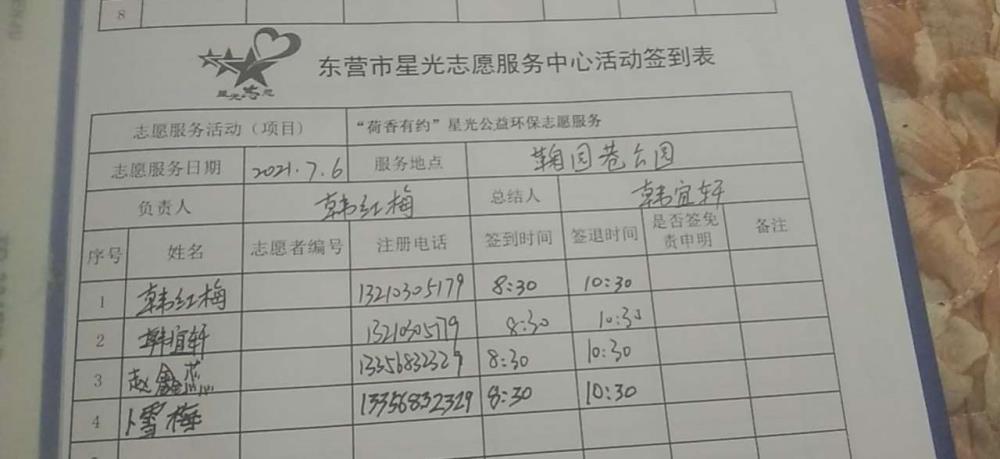 8
星光志愿
东营市星光志愿服务中心活动签到表
志愿服务活动（项目） “荷香有约”星光公益环保志愿服务
志愿服务日期 2021.7.6 服务地点 鞠园巷公园
负责人 韩红梅 总结人 韩宜轩
序号 姓名 志愿者编号 注册电话 签到时间 签退时间 是否签免责申明 备注
1 韩红梅 13210305179 8:30 10:30
2 韩宜轩 1321030579 8:30 10:30
3 赵鑫蕊 13356832329 8:30 10:30
4 卜雪梅 13356832329 8:30 10:30